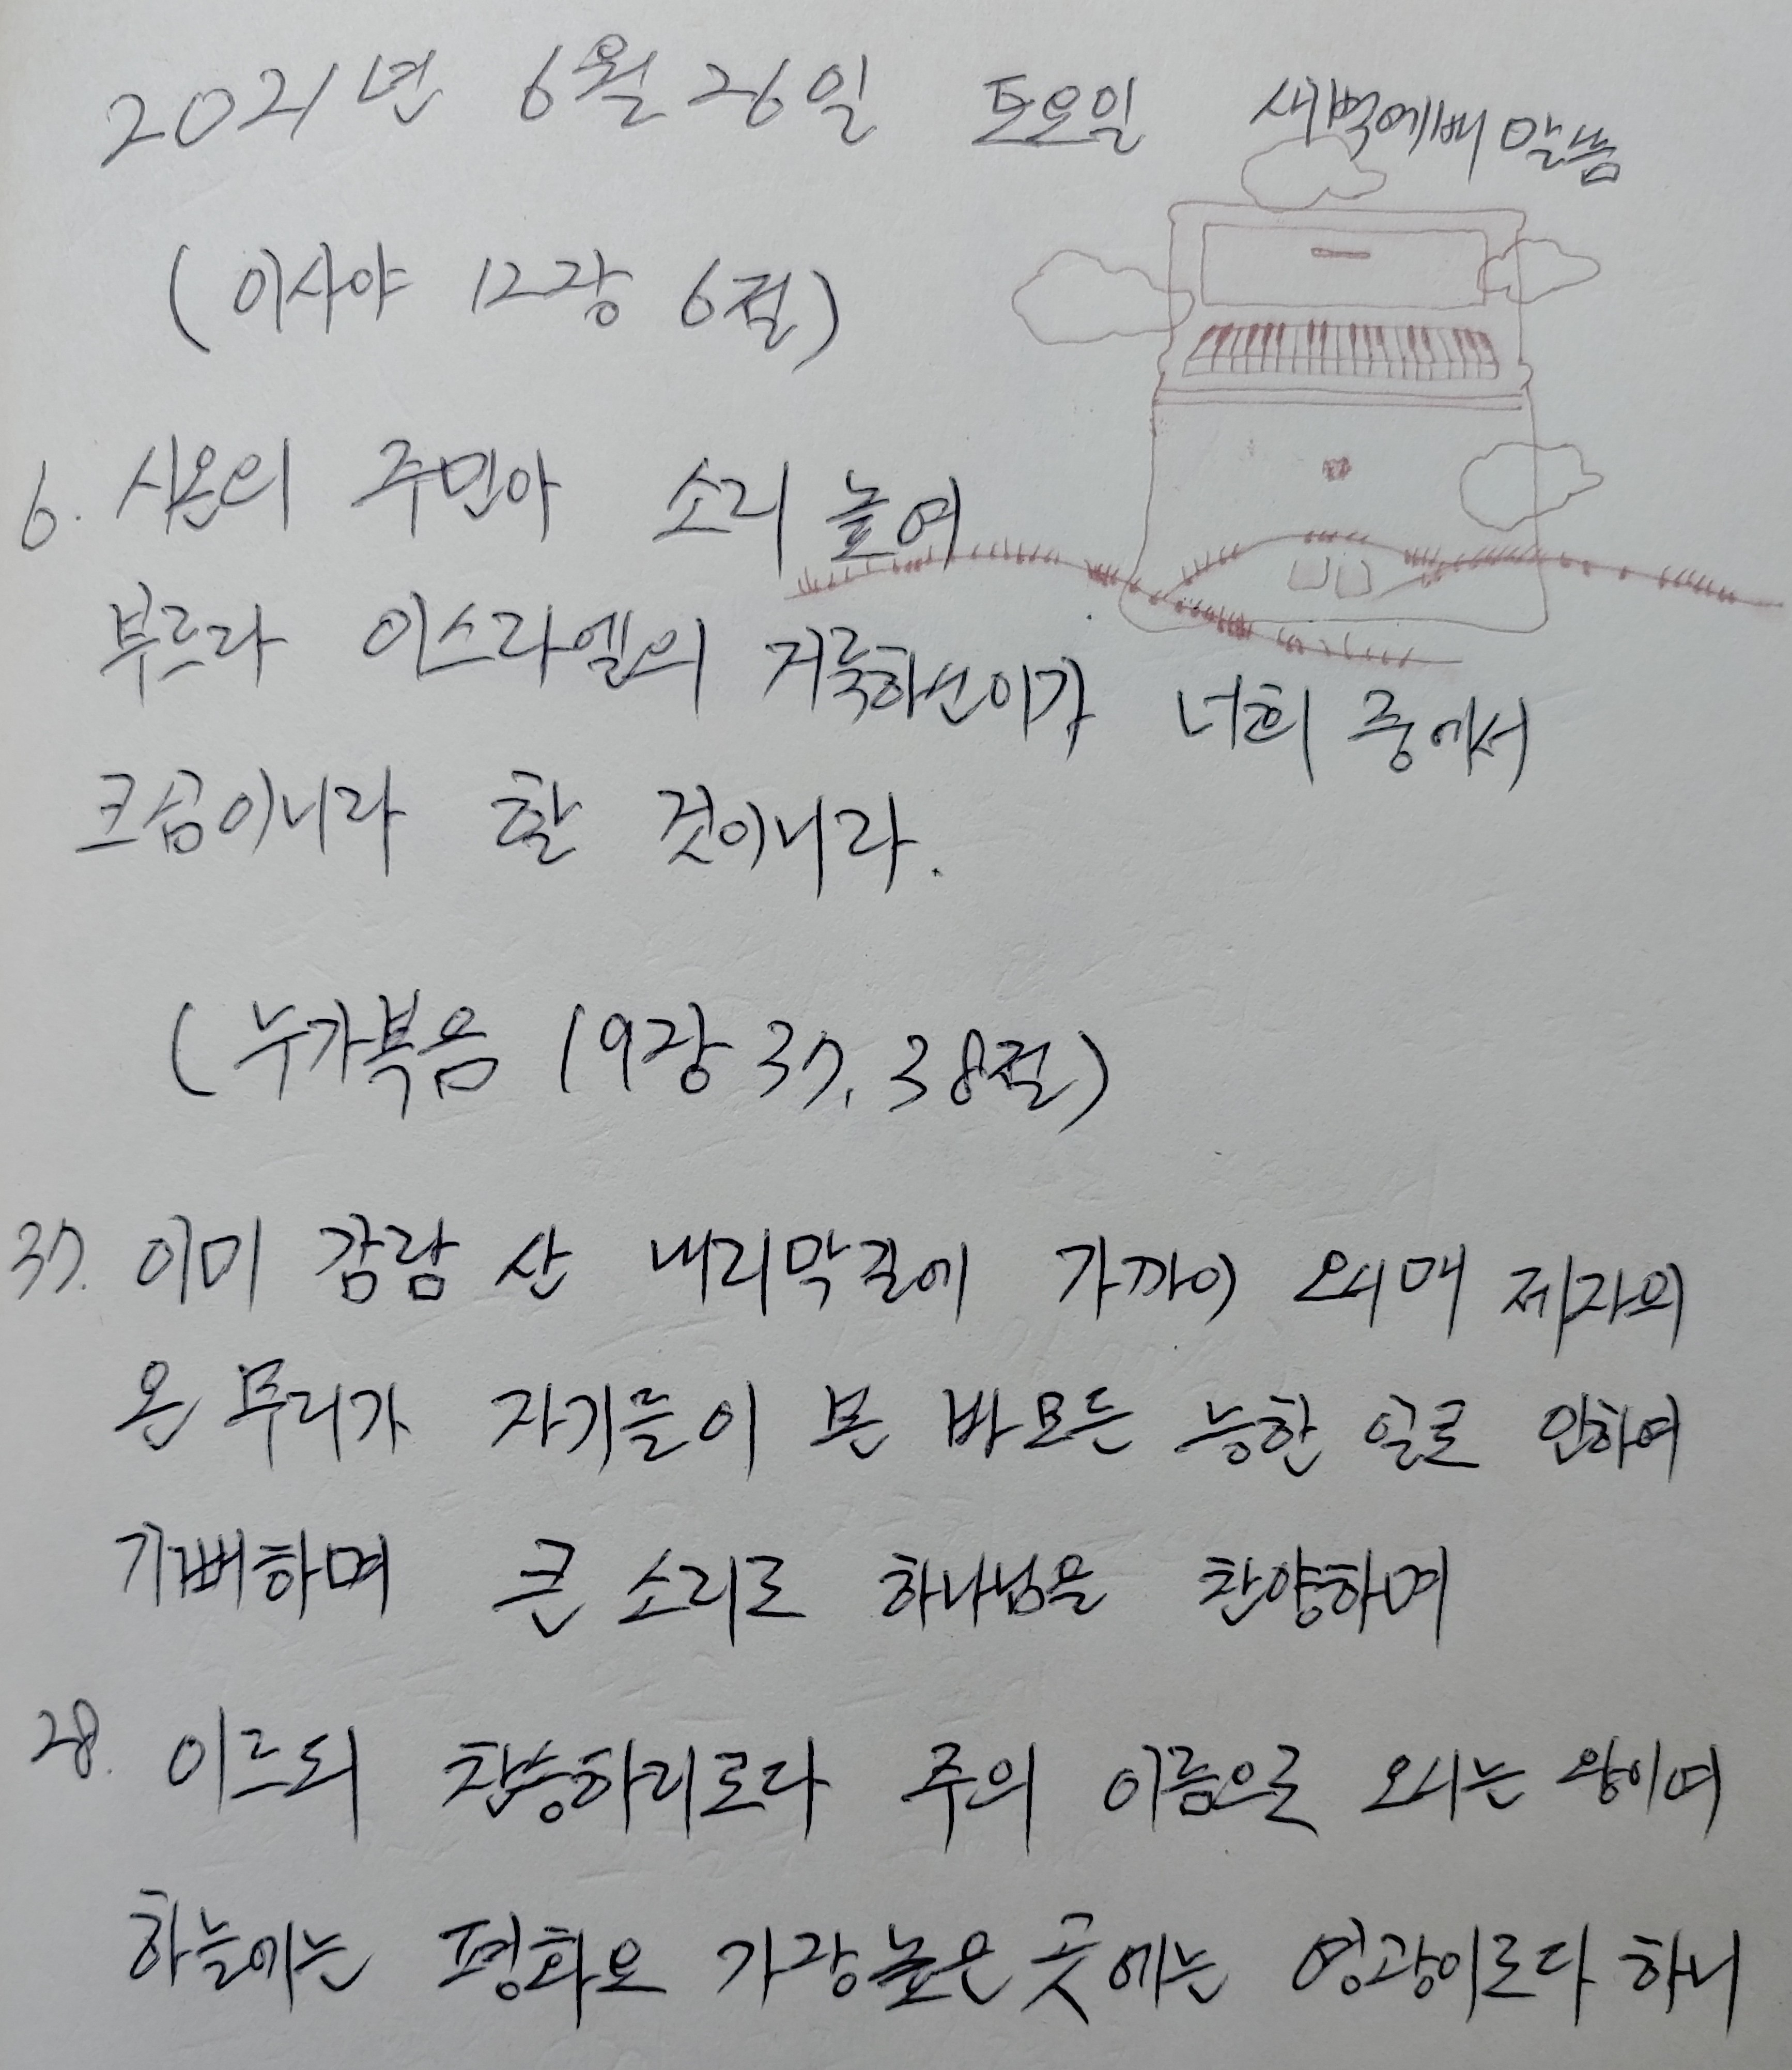 2021년 6월 26일 토요일 새벽예배 말씀
(이사야 12장 6절)
6. 시온의 주민아 소리 높여
부르라 이스라엘의 거룩하신이가 너희 중에서
크심이니라 할 것이니라.
(누가복음 19장 37, 38절)
37. 이미 감람 산 내리막길에 가까이 오시매 제자의
온 무리가 자기들이 본 바 모든 능한 일로 인하여
기뻐하며 큰 소리로 하나님을 찬양하며
28. 이르되 찬송하리로다 주의 이름으로 오시는 왕이여
하늘에는 평화요 가장 높은 곳에는 영광이로다 하니